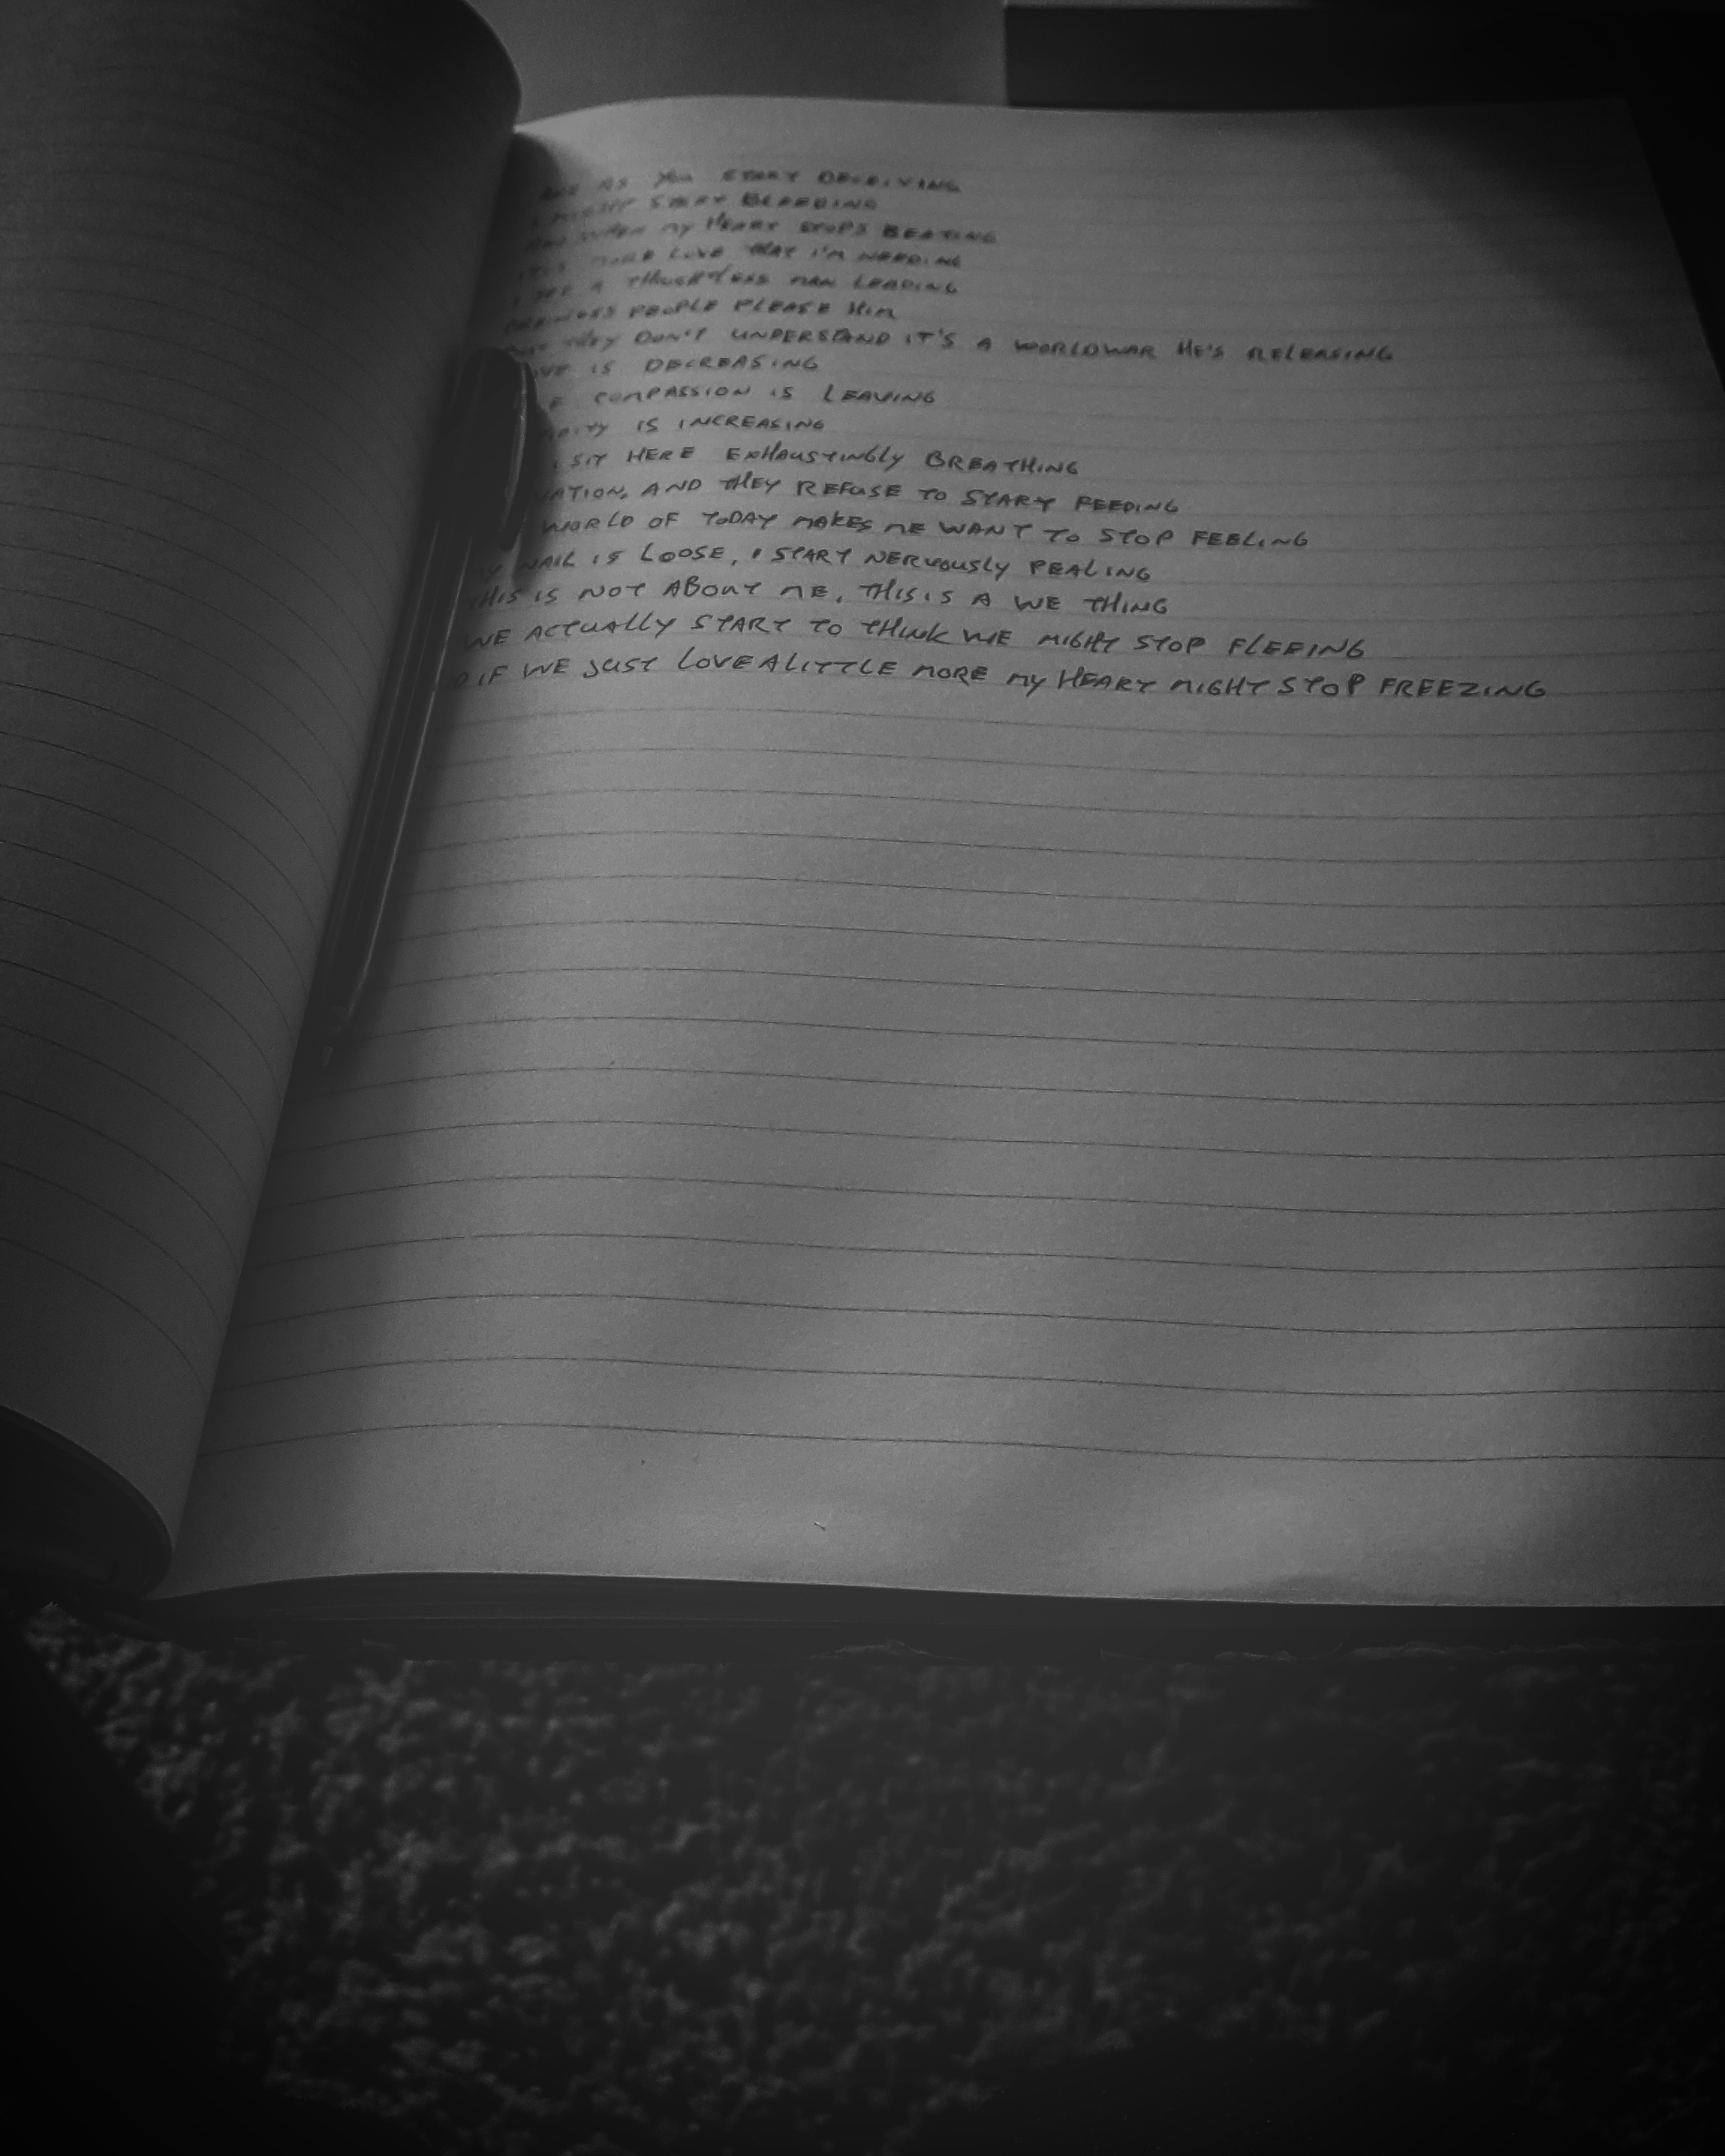 AS YOU START DECEIVING
I MIGHT START BLEEDING
AND WHEN MY HEART STOPS BEATING
IT'S MORE LOVE THAT I'M NEEDING
I SEE A THOUGHTLESS MAN LEADING
PEOPLE PLEASE HIM
BUT THEY DON'T UNDERSTAND IT'S A WORLDWAR HE'S RELEASING
IS DECREASING
COMPASSION IS LEAVING
IS INCREASING
SIT HERE EXHAUSTINGLY BREATHING
AND THEY REFUSE TO START FEEDING
WORLD OF TODAY MAKES ME WANT TO STOP FEELING
NAIL IS LOOSE, I START NERVOUSLY PEALING
THIS IS NOT ABOUT ME, THIS IS A WE THING
WE ACTUALLY START TO THINK WE MIGHT STOP FLEEING
IF WE JUST LOVE A LITTLE MORE MY HEART MIGHT STOP FREEZING